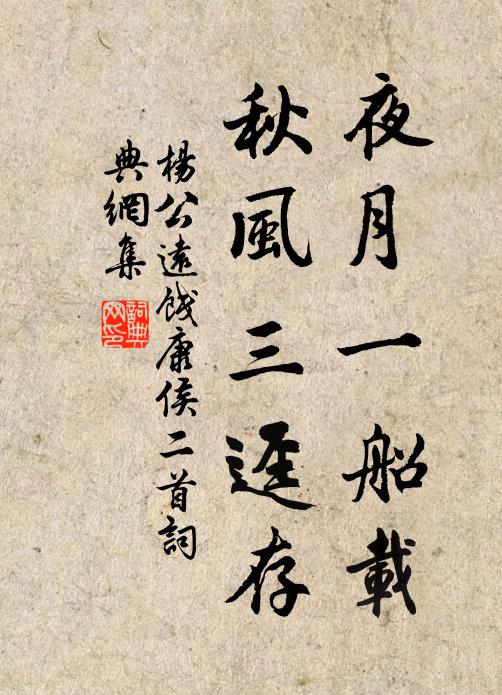 夜月一船載
秋風三逕存
楊公遠餞康侯二首詞
典網集
詞典
网印